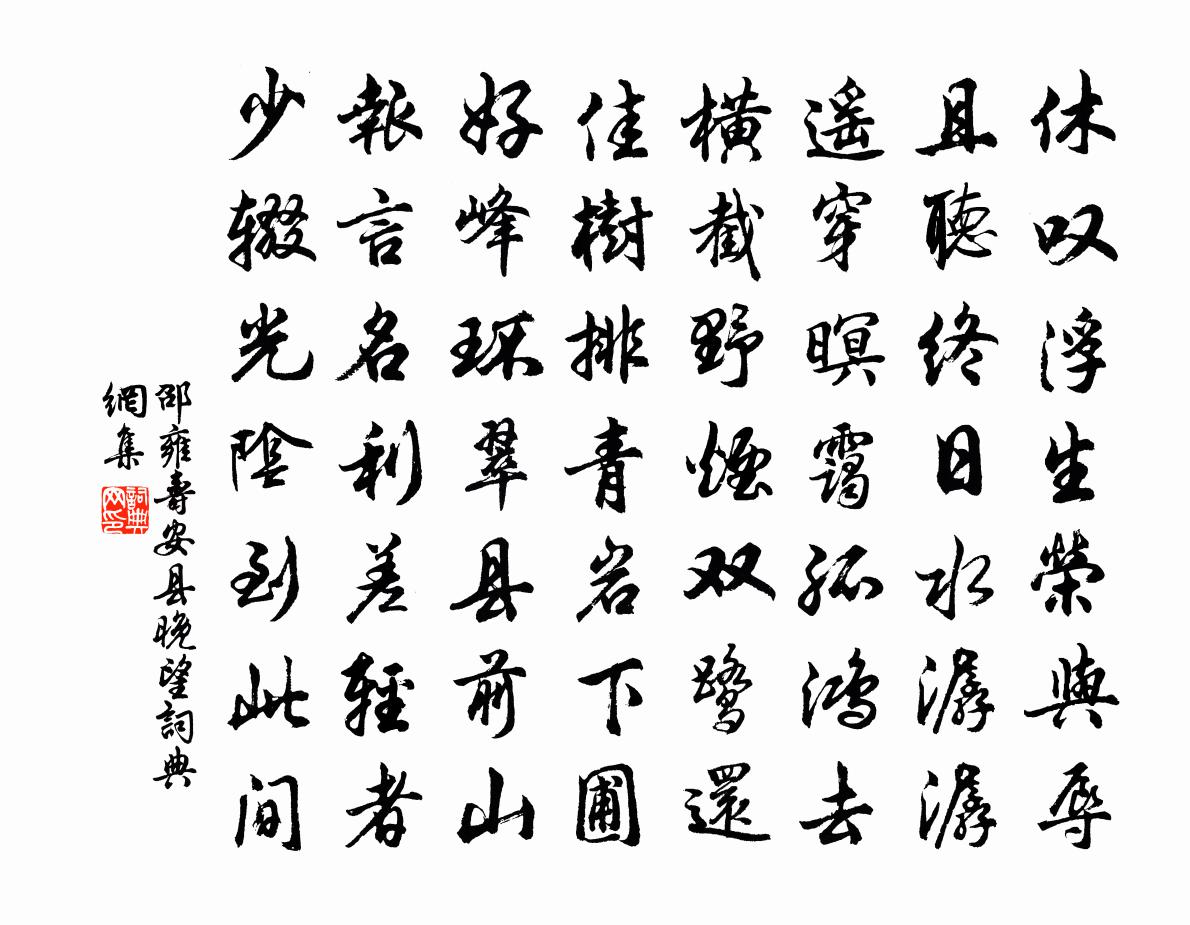 休叹浮生榮與辱
且聽終日水潺潺
遥穿暝靄孤鴻去
横截野煙双鷺還
佳樹排青岩下圃
好峰环翠县前山
報言名利差輕者
少辍光陰到此间
邵雍寿安县晚望詞典
網集
詞典网印